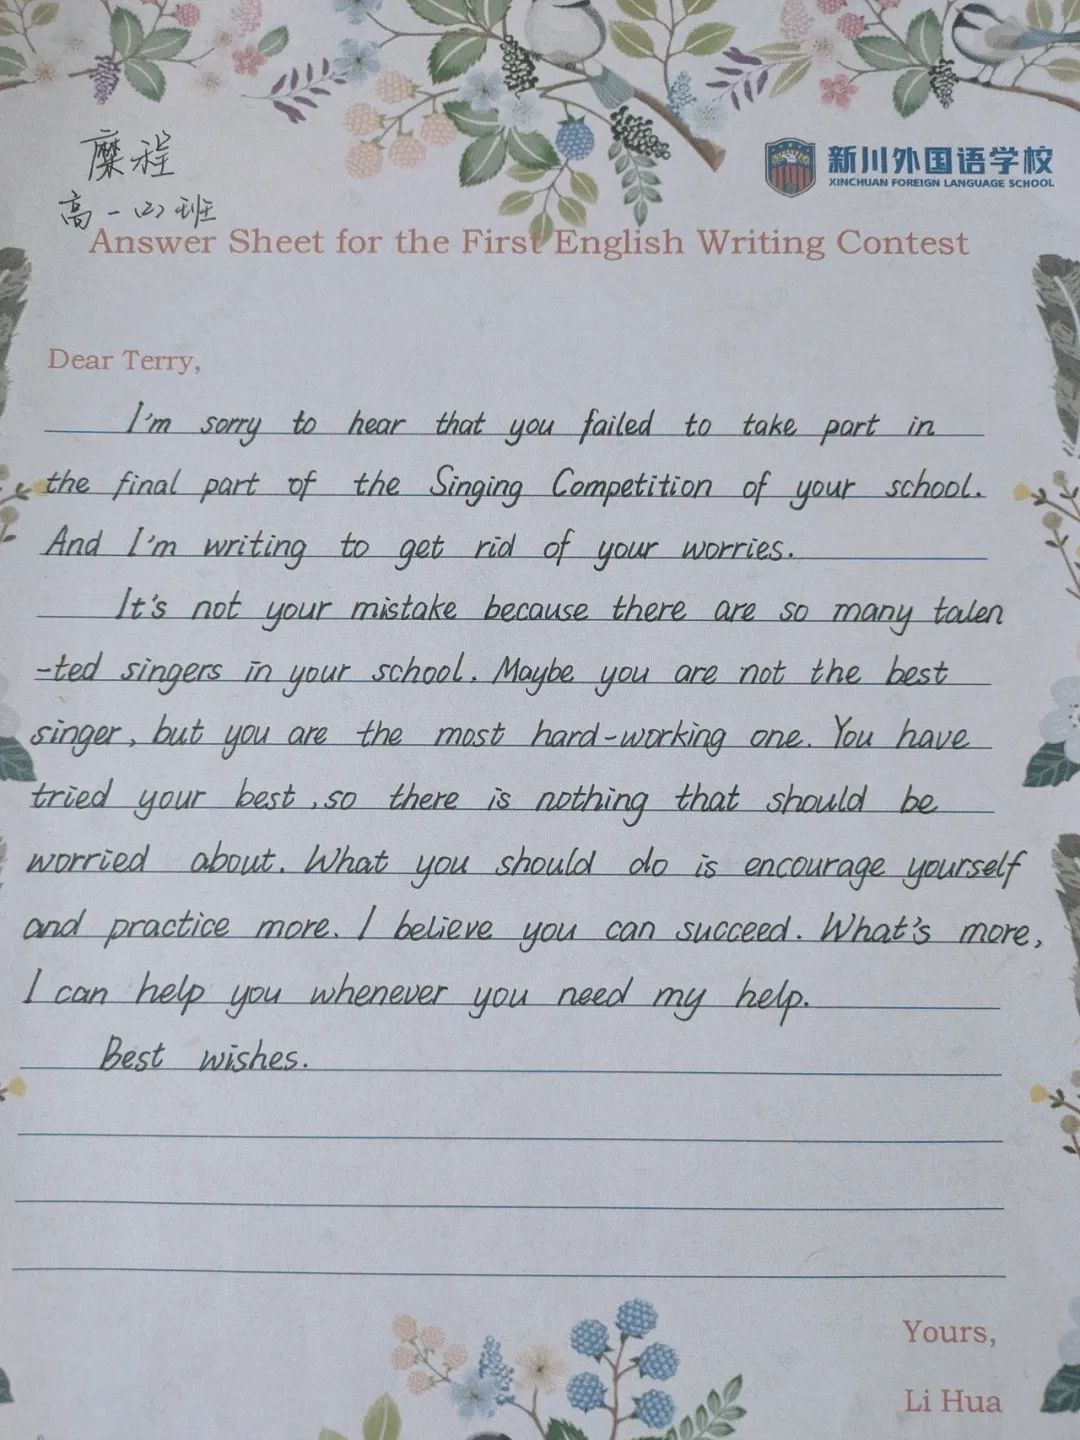 糜程
高一(2)班
新川外国语学校
XINCHUAN FOREIGN LANGUAGE SCHOOL
Answer Sheet for the First English Writing Contest
Dear Terry,
I'm sorry to hear that you failed to take part in
the final part of the Singing Competition of your school.
And I'm writing to get rid of your worries.
It's not your mistake because there are so many talen
-ted singers in your school. Maybe you are not the best
singer, but you are the most hard-working one. You have
tried your best, so there is nothing that should be
worried about. What you should do is encourage yourself
and practice more. I believe you can succeed. What's more,
I can help you whenever you need my help.
Best wishes.
Yours,
Li Hua